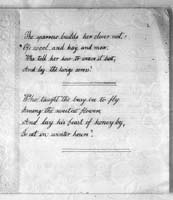 The sparrow builds her clever nest,
Of wool, and hay, and moss.
Who told her how to weave it best,
And lay the twigs across?
Who taught the busy bee to fly
Among the sweetest flowers
And lay his feast of honey by,
To eat in winter hours?